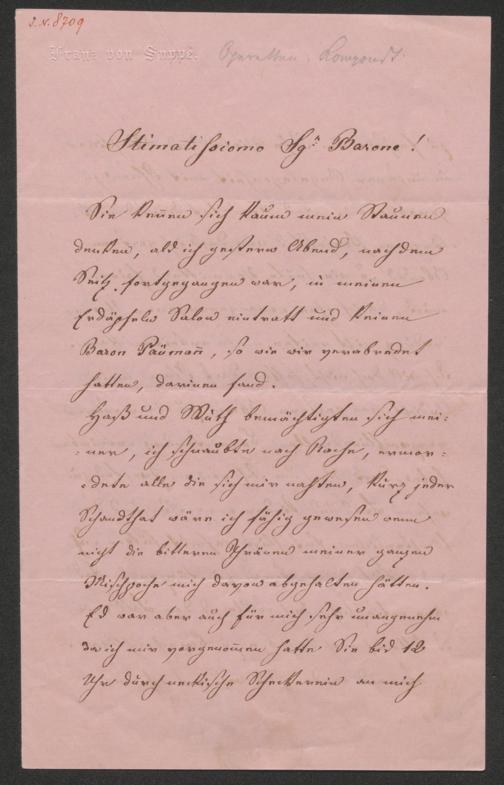 I.N. 8709
Franz von Suppé. Operetten-Komponist
Stimatissiomo Sgr Barone!
Sie können sich kaum mein Staunen
denken, als ich gestern Abend, nachdem
Seitz fortgegangen war, in meinen
Erdäpfeln Salon eintratt und keinen
Baron Päumañ, so wie wir verabredet
hatten, darinen fand.
Haß und Wuth bemächtigten sich mei-
ner, ich schnaubte nach Rache, ermor-
dete alle die sich mir nahten, kurz jeder
Schandthat wäre ich fähig gewesen wenn
nicht die bitteren Thränen meiner ganzen
Mischpoche mich davon abgehalten hätten.
Es war aber auch für mich sehr unangenehm
da ich mir vorgenom̄en hatte Sie bis 12
Uhr durch neckische Scheckerein an mich